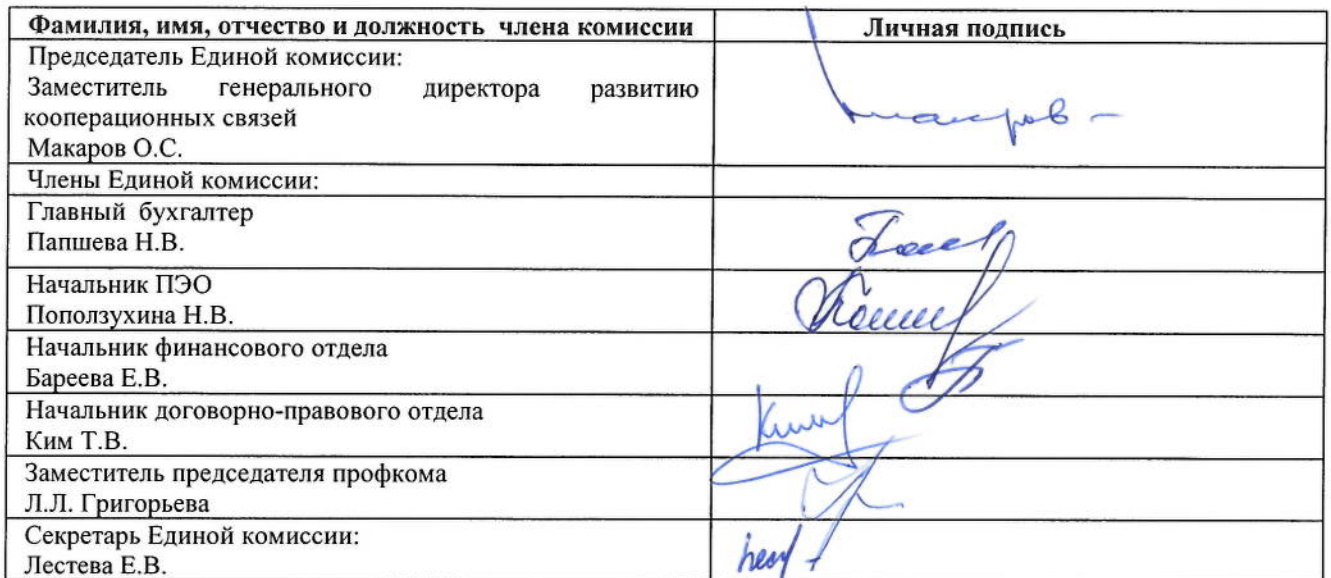 Фамилия, имя, отчество и должность члена комиссии Личная подпись
Председатель Единой комиссии:
Заместитель генерального директора развитию
кооперационных связей
Макаров О.С.
Макаров
Члены Единой комиссии:
Главный бухгалтер
Папшева Н.В.
Начальник ПЭО
Поползухина Н.В.
Начальник финансового отдела
Бареева Е.В.
Начальник договорно-правового отдела
Ким Т.В.
Ким
Заместитель председателя профкома
Л.Л. Григорьева
Секретарь Единой комиссии:
Лестева Е.В.